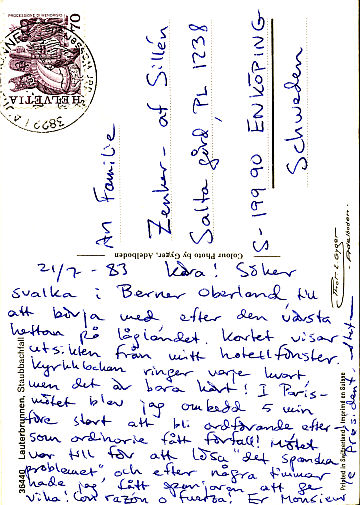 HELVETIA 70
3822 LAUTERBRUNNEN
An Familie
Zenker - af Sillén
Salta gård, PL 1238
S-199 90 ENKÖPING
Schweden
Colour Photo by Gyger, Adelboden
36440 Lauterbrunnen, Staubbachfall
Imprimé en Suisse
21/7 - 83 Kära! Söker
svalka i Berner Oberland till
att börja med efter den värsta
hettan på låglandet. Kortet visar
utsikten från mitt hotellfönster.
Kyrkklockan ringer varje kvart
men det är bara kört! I Paris-
mötet blev jag ombedd 5 min
före start att bli ordförande efter-
som ordinarie fått förfall! Mötet
var till för att lösa "det spanska
problemet" och efter några timmar
hade jag fått spanjoren att ge
vika! Con razón o fuerza! Er Monsieur
le Président